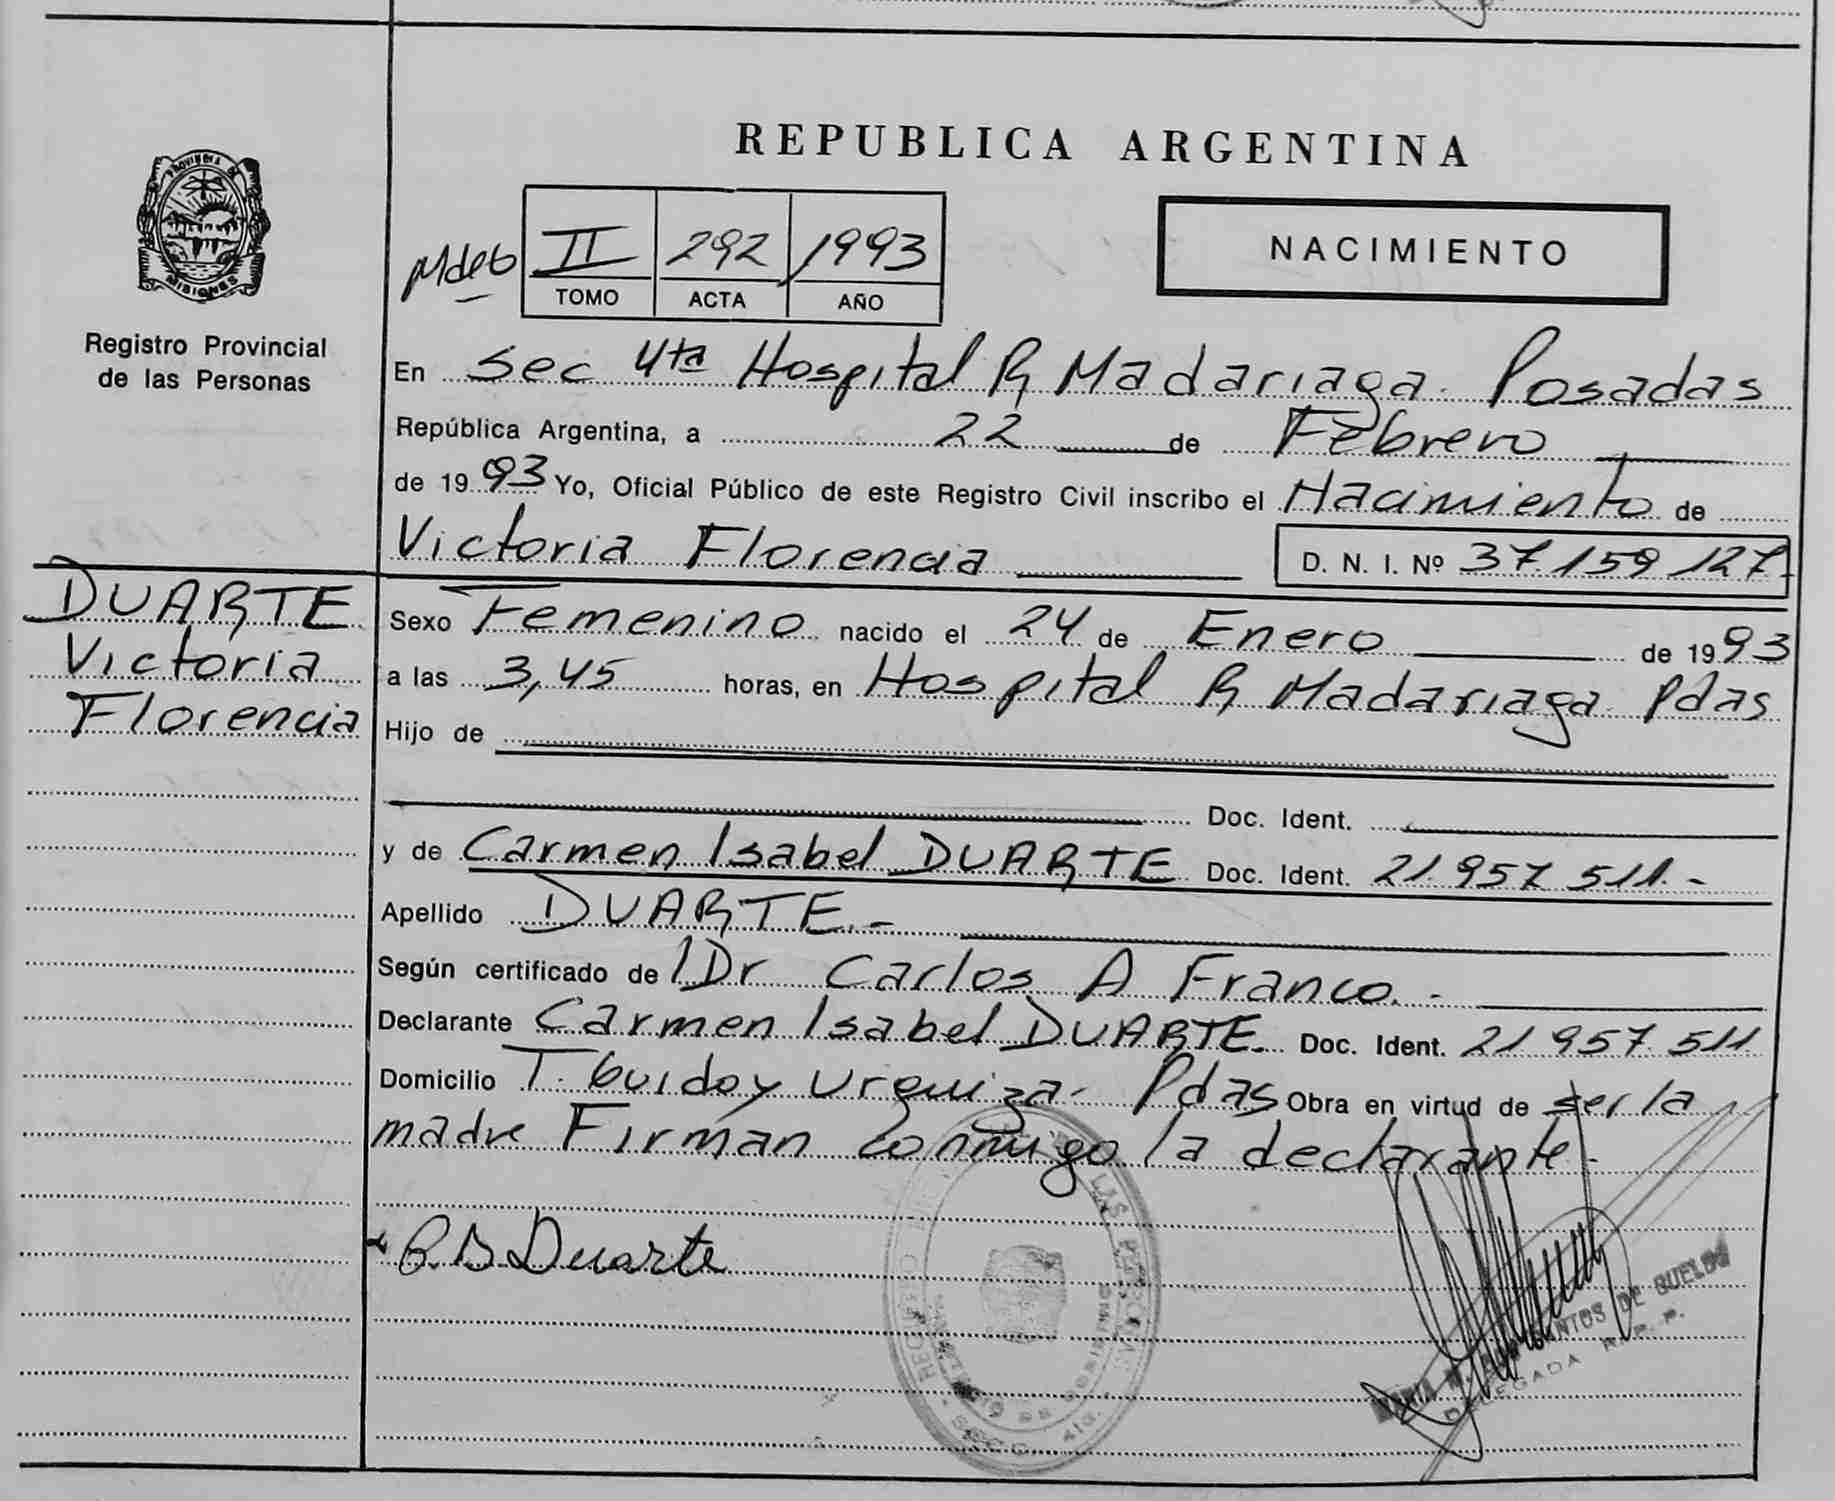 REPUBLICA ARGENTINA
PROVINCIA DE
MISIONES
Registro Provincial
de las Personas
II 292 1993
TOMO ACTA AÑO
NACIMIENTO
En Sec 4ta Hospital R Madariaga Posadas
República Argentina, a 22 de Febrero
de 1993 Yo, Oficial Público de este Registro Civil inscribo el Nacimiento de
Victoria Florencia D. N. I. Nº 37 159 127.-
DUARTE
Victoria
Florencia
Sexo Femenino nacido el 24 de Enero de 1993
a las 3,45 horas, en Hospital R Madariaga Pdas
Hijo de
Doc. Ident.
y de Carmen Isabel DUARTE Doc. Ident. 21 957 511.-
Apellido DUARTE.-
Según certificado de Dr Carlos A Franco.-
Declarante Carmen Isabel DUARTE. Doc. Ident. 21 957 511
Domicilio T. Guido y Urquiza- Pdas Obra en virtud de ser la
madre Firman conmigo la declarante-
Duarte
SANTOS DE SUELDO
DELEGADA R. P. P.